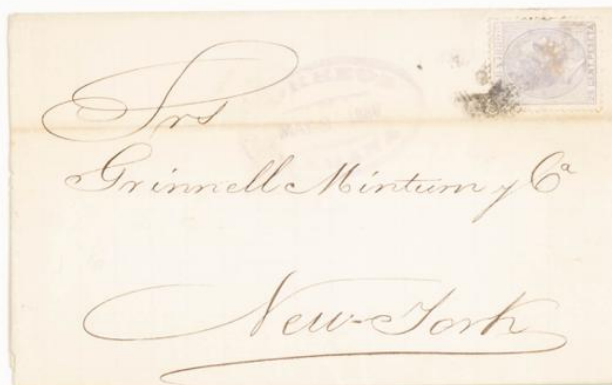 Srs
Grinnell Minturn y Cª
New-York